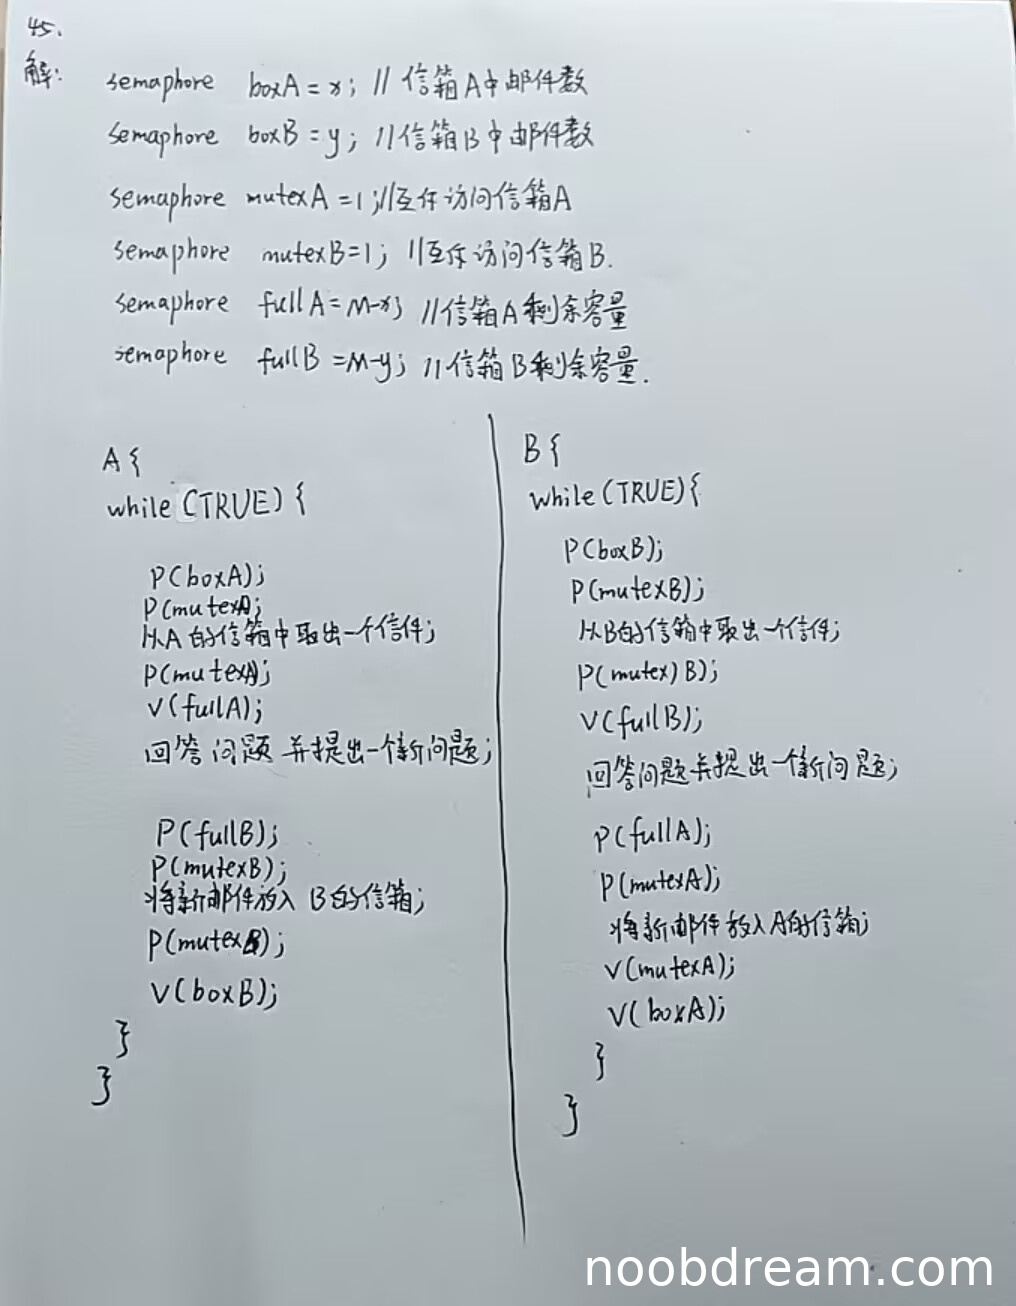 45.
解:
semaphore boxA = x; // 信箱A中邮件数
semaphore boxB = y; //信箱B中邮件数
semaphore mutexA = 1;//互斥访问信箱A
semaphore mutexB=1; //互斥访问信箱B.
semaphore fullA=M-x; //信箱A剩余容量
semaphore fullB =M-y; //信箱B剩余容量.
A{
while (TRUE) {
P(boxA);
P(mutexA);
从A的信箱中取出一个信件;
P(mutexA);
V(fullA);
回答问题并提出一个新问题;
P(fullB);
P(mutexB);
将新邮件放入B的信箱;
P(mutexB);
V(boxB);
}
}
B{
while(TRUE){
P(boxB);
P(mutexB);
从B的信箱中取出一个信件;
P(mutex)B);
V(fullB);
回答问题并提出一个新问题;
P(fullA);
P(mutexA);
将新邮件放入A的信箱;
V(mutexA);
V(boxA);
}
}
noobdream.com